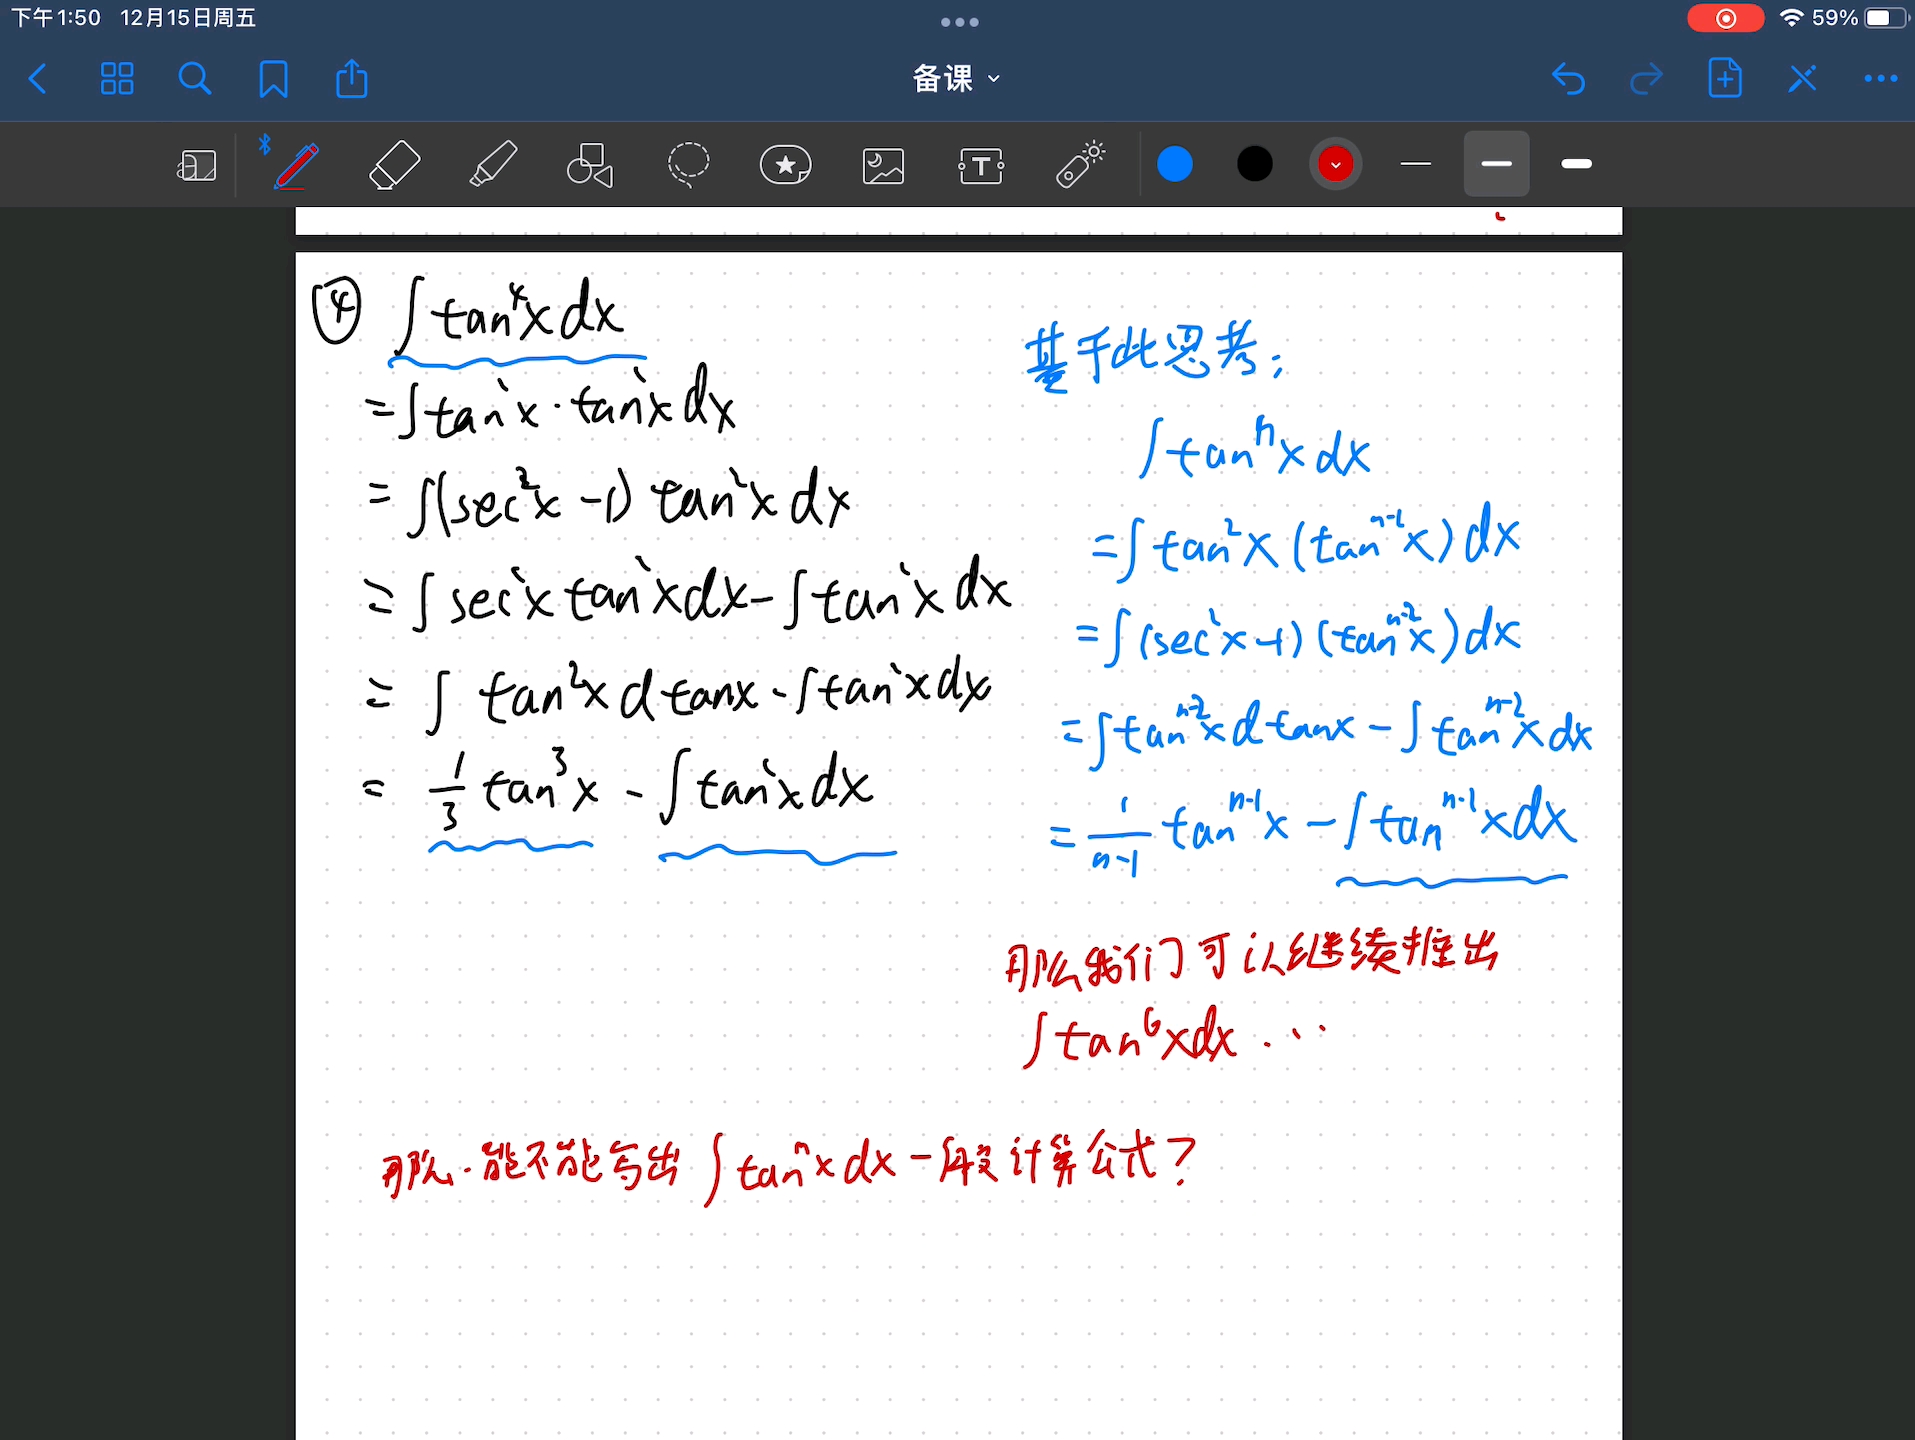 下午1:50 12月15日周五
59%
备课
T
④ ∫tan⁴x dx
=∫tan²x·tan²x dx
=∫(sec²x-1) tan²x dx
=∫sec²x tan²x dx-∫tan²x dx
=∫ tan²x d tanx-∫tan²x dx
= 1/3 tan³x -∫tan²x dx
基于此思考:
∫tanⁿx dx
=∫tan²x (tanⁿ⁻²x) dx
=∫(sec²x-1) (tanⁿ⁻²x) dx
=∫tanⁿ⁻²x d tanx-∫tanⁿ⁻²x dx
= 1/(n-1) tanⁿ⁻¹x -∫tanⁿ⁻²x dx
那么我们可以继续推出
∫tan⁶x dx ···
那么.能不能写出∫tanⁿx dx一般计算公式?